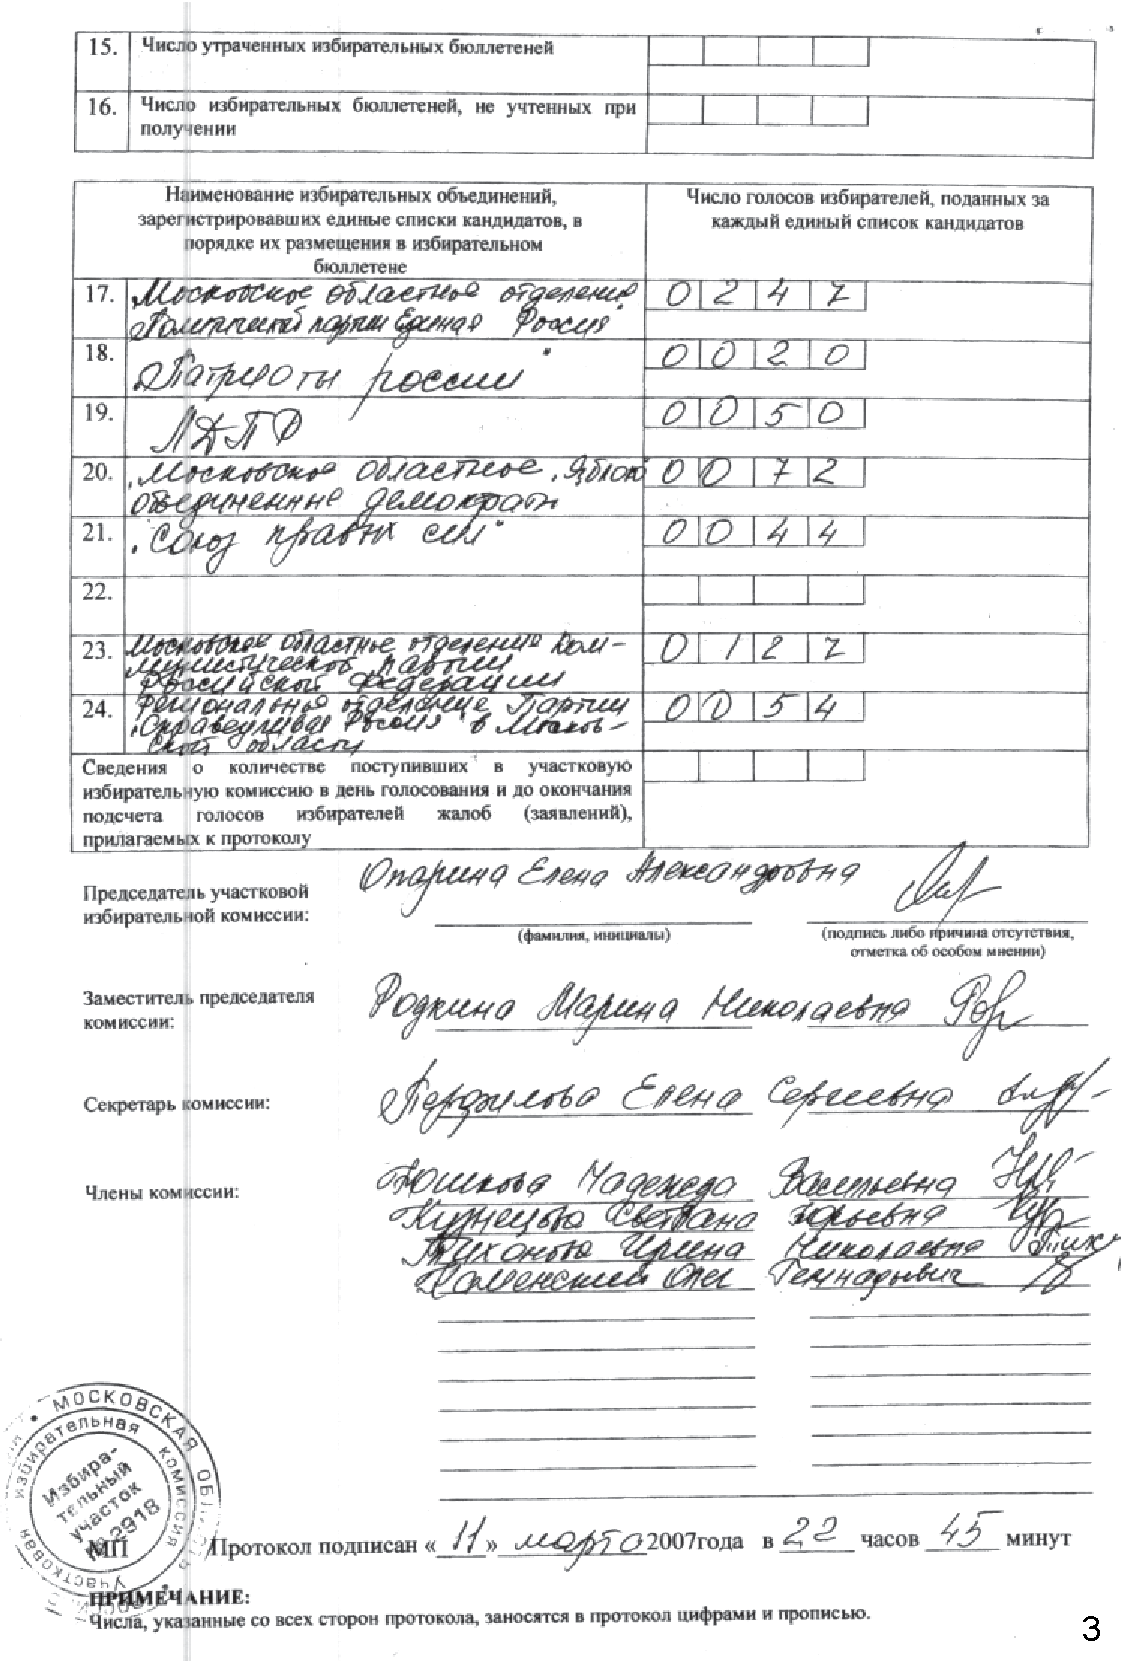 15. Число утраченных избирательных бюллетеней
16. Число избирательных бюллетеней, не учтенных при
получении
Наименование избирательных объединений,
зарегистрировавших единые списки кандидатов, в
порядке их размещения в избирательном
бюллетене
Число голосов избирателей, поданных за
каждый единый список кандидатов
17. „Московское областное отделение 0 2 4 7
„Политической партии Единая Россия"
18. „Патриоты россии" 0 0 2 0
19. ЛДПР 0 0 5 0
20. „Московское областное „Яблоко 0 0 7 2
объединенные демократы
21. „Союз правых сил" 0 0 4 4
22.
23. Московское областное отделение Ком- 0 1 2 7
мунистической партии
Российской Федерации
24. Региональное отделение Партии 0 0 5 4
„Справедливая Россия" в Москов-
ской области
Сведения о количестве поступивших в участковую
избирательную комиссию в день голосования и до окончания
подсчета голосов избирателей жалоб (заявлений),
прилагаемых к протоколу
Председатель участковой
избирательной комиссии:
Опарина Елена Александровна
(фамилия, инициалы)
(подпись либо причина отсутствия,
отметка об особом мнении)
Заместитель председателя
комиссии:
Родкина Марина Николаевна
Секретарь комиссии: Елена Сергеевна
Члены комиссии: Юшкова Надежда Васильевна
Кузнецова Светлана Юрьевна
Тихонова Ирина Николаевна
Каменский Олег Геннадьевич
МОСКОВСКАЯ ОБЛАСТЬ
Участковая избирательная комиссия
Избира-
тельный
участок
№ 2918
МП Протокол подписан « 11 » марта 2007года в 22 часов 45 минут
ПРИМЕЧАНИЕ:
Числа, указанные со всех сторон протокола, заносятся в протокол цифрами и прописью.
3